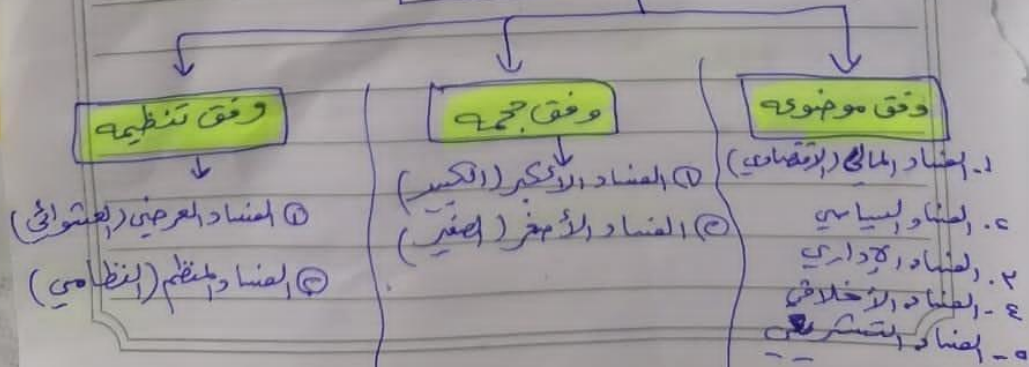 وفق موضوعه
١. الفساد المالي (الاقتصادي)
٢. الفساد السياسي
٣. الفساد الإداري
٤- الفساد الأخلاقي
٥- الفساد التشريعي
وفق حجمه
① الفساد الأكبر (الكبير)
② الفساد الأصغر (الصغير)
وفق تنظيمه
① الفساد العرضي (العشوائي)
② الفساد المنظم (النظامي)